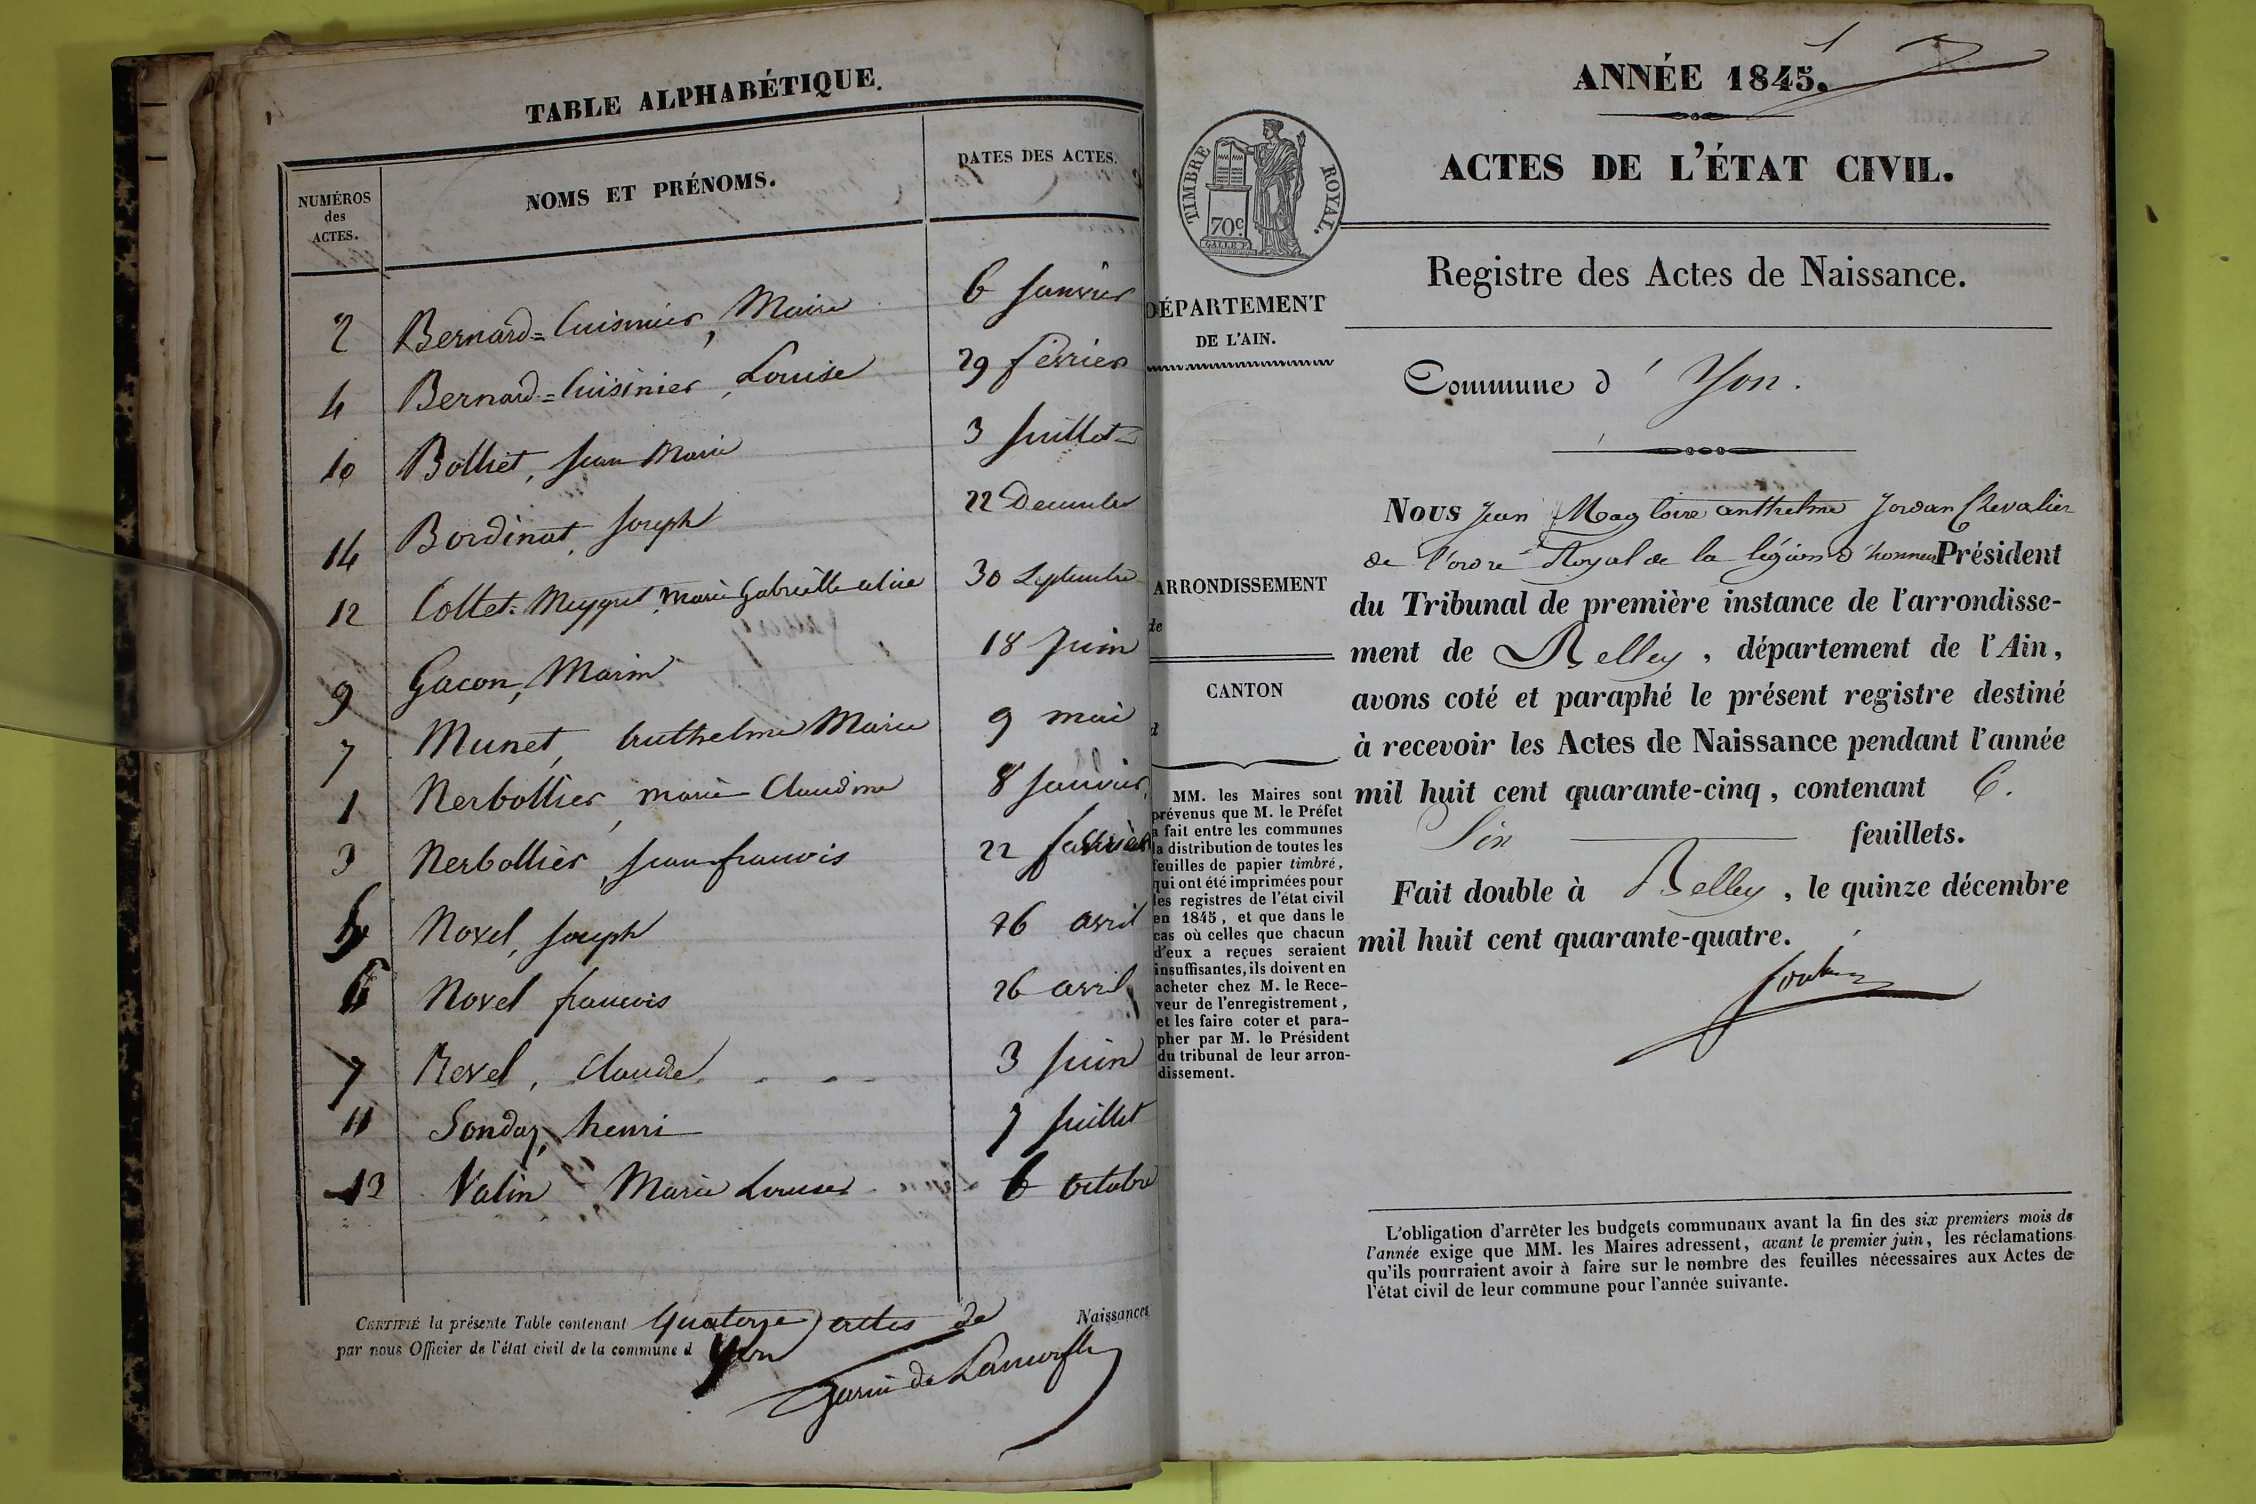 TABLE ALPHABÉTIQUE.
NUMÉROS
des
ACTES.
NOMS ET PRÉNOMS.
DATES DES ACTES.
2 Bernard=Cuisinier, Marie 6 Janvier
4 Bernard=Cuisinier, Louise 29 février
10 Bolliet, Jean Marie 3 Juillet
14 Bordinat, Joseph 22 Decembre
12 Collet=Meygret, Marie Gabrielle alice 30 Septembre
9 Gacon, Marin 18 Juin
7 Munet, Anthelme Marie 9 mai
1 Nerbollier, marie Claudine 8 Janvier
3 Nerbollier, Jean françois 22 février
5 Novel, Joseph 26 avril
6 Novel françois 26 avril
7 Revel, Claude 3 Juin
11 Sonday, henri 7 Juillet
13 Valin Marie Louise 6 octobre
CERTIFIÉ la présente Table contenant Quatorze actes de Naissances
par nous Officier de l'état civil de la commune d Yon
1
ANNÉE 1845.
TIMBRE ROYAL.
70c
ACTES DE L'ÉTAT CIVIL.
Registre des Actes de Naissance.
DÉPARTEMENT
DE L'AIN.
Commune d' Yon.
ARRONDISSEMENT
de
CANTON
d
MM. les Maires sont
prévenus que M. le Préfet
a fait entre les communes
la distribution de toutes les
feuilles de papier timbré,
qui ont été imprimées pour
les registres de l'état civil
en 1845, et que dans le
cas où celles que chacun
d'eux a reçues seraient
insuffisantes, ils doivent en
acheter chez M. le Rece-
veur de l'enregistrement,
et les faire coter et para-
pher par M. le Président
du tribunal de leur arron-
dissement.
Nous Jean Magloire anthelme Jordan Chevalier
de l'ordre Royal de la légion d'honneur Président
du Tribunal de première instance de l'arrondisse-
ment de Belley, département de l'Ain,
avons coté et paraphé le présent registre destiné
à recevoir les Actes de Naissance pendant l'année
mil huit cent quarante-cinq, contenant 6.
Six feuillets.
Fait double à Belley, le quinze décembre
mil huit cent quarante-quatre.
Jordan
L'obligation d'arrêter les budgets communaux avant la fin des six premiers mois de
l'année exige que MM. les Maires adressent, avant le premier juin, les réclamations
qu'ils pourraient avoir à faire sur le nombre des feuilles nécessaires aux Actes de
l'état civil de leur commune pour l'année suivante.